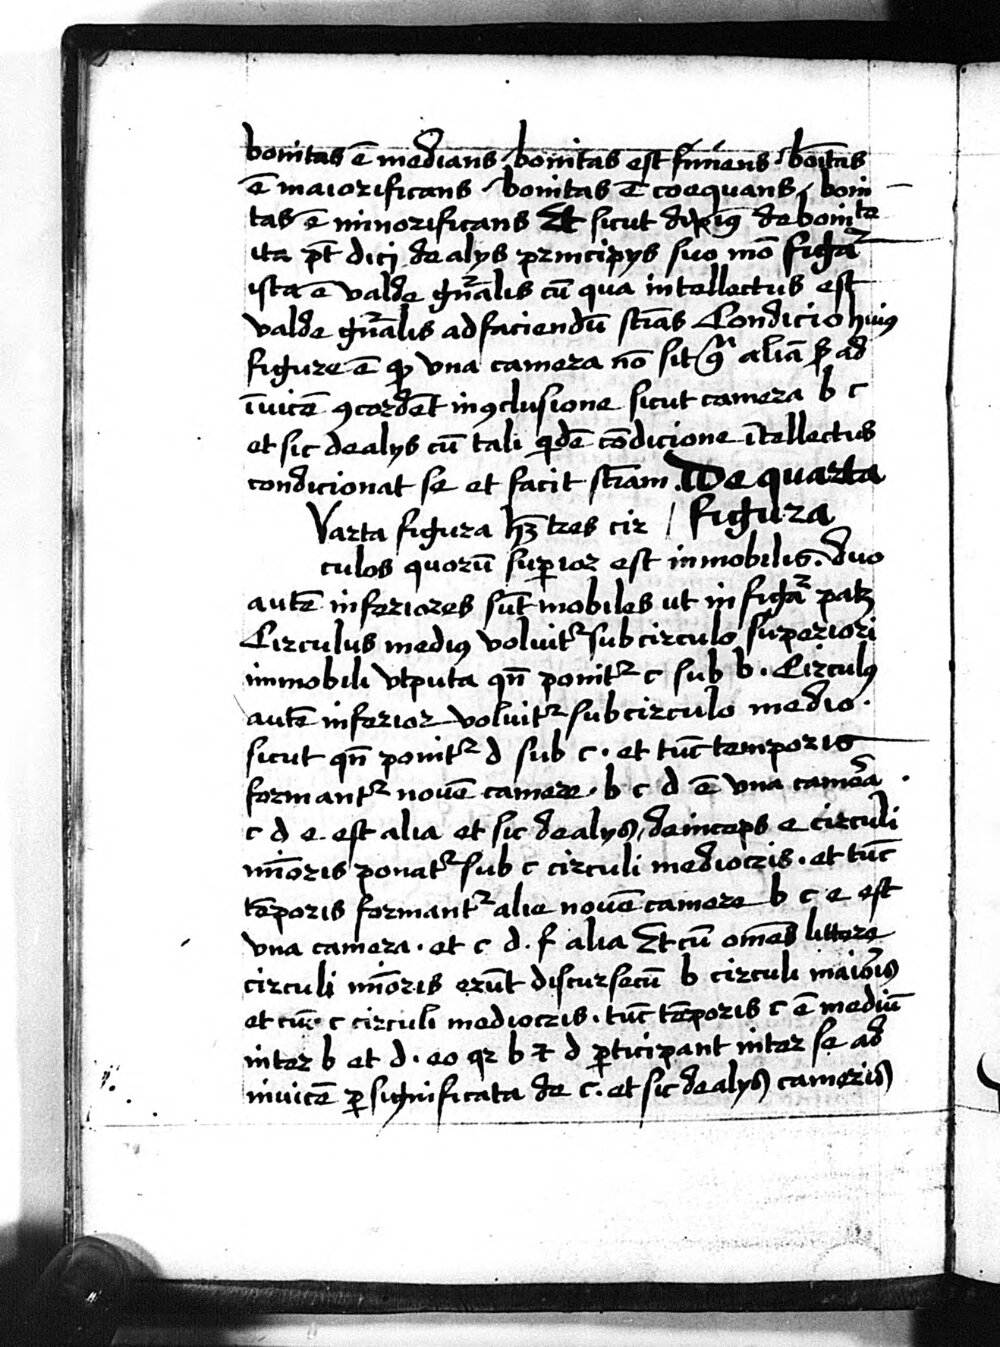 bonitas ē medians bonitas est finiens bōitas
ē maiorificans bonitas ē coequans boni
tas ē minorificans Et sicut diximꝯ de bonitate
ita pt̄ dici de alys principys suo mō figᷓa
ista ē valde gn̄alis cū qua intellectus est
valde gn̄alis ad faciendū sciās Condicio huiꝯ
figure ē qꝫ vna camera nō sit 9ᵃ aliā sꝫ ad
īuicē ꝯcordēt in ꝯclusione sicut camera b c
et sic de alys cū tali qⁱdē cōdicione ītellectus
condicionat se et facit sciāam De quarta
Varta figura hꝫ tres cir / figura
culos quorū suꝑior est inmobilis. duo
autē inferiores sūt mobiles ut in figᷓa patꝫ
Circulus mediꝯ voluitᷣ sub circulo superiori
immobili vtputa qn̄ ponitᷣ c sub b. Circulꝯ
autē inferior voluitᷣ sub circulo medio.
sicut qn̄ ponitᷣ d sub c. et tūc temporis
formantᷣ nouē camere. b c d ē vna camēa.
c d e est alia et sic de alys deinceps e circuli
mīoris ponatᷣ sub c circuli mediocris. et tūc
tēporis formantᷣ alie nouē camere b c e est
vna camera. et c d. f alia Et cū omēs littere
circuli mīoris erūt discurse cū b circuli maioris
et cū c circuli mediocris. tūc tēporis c ē mediū
inter b et d. eo qꝛ b ⁊ d ꝑticipant inter se ad
inuicē ꝑ significata de c. et sic de alys cameris